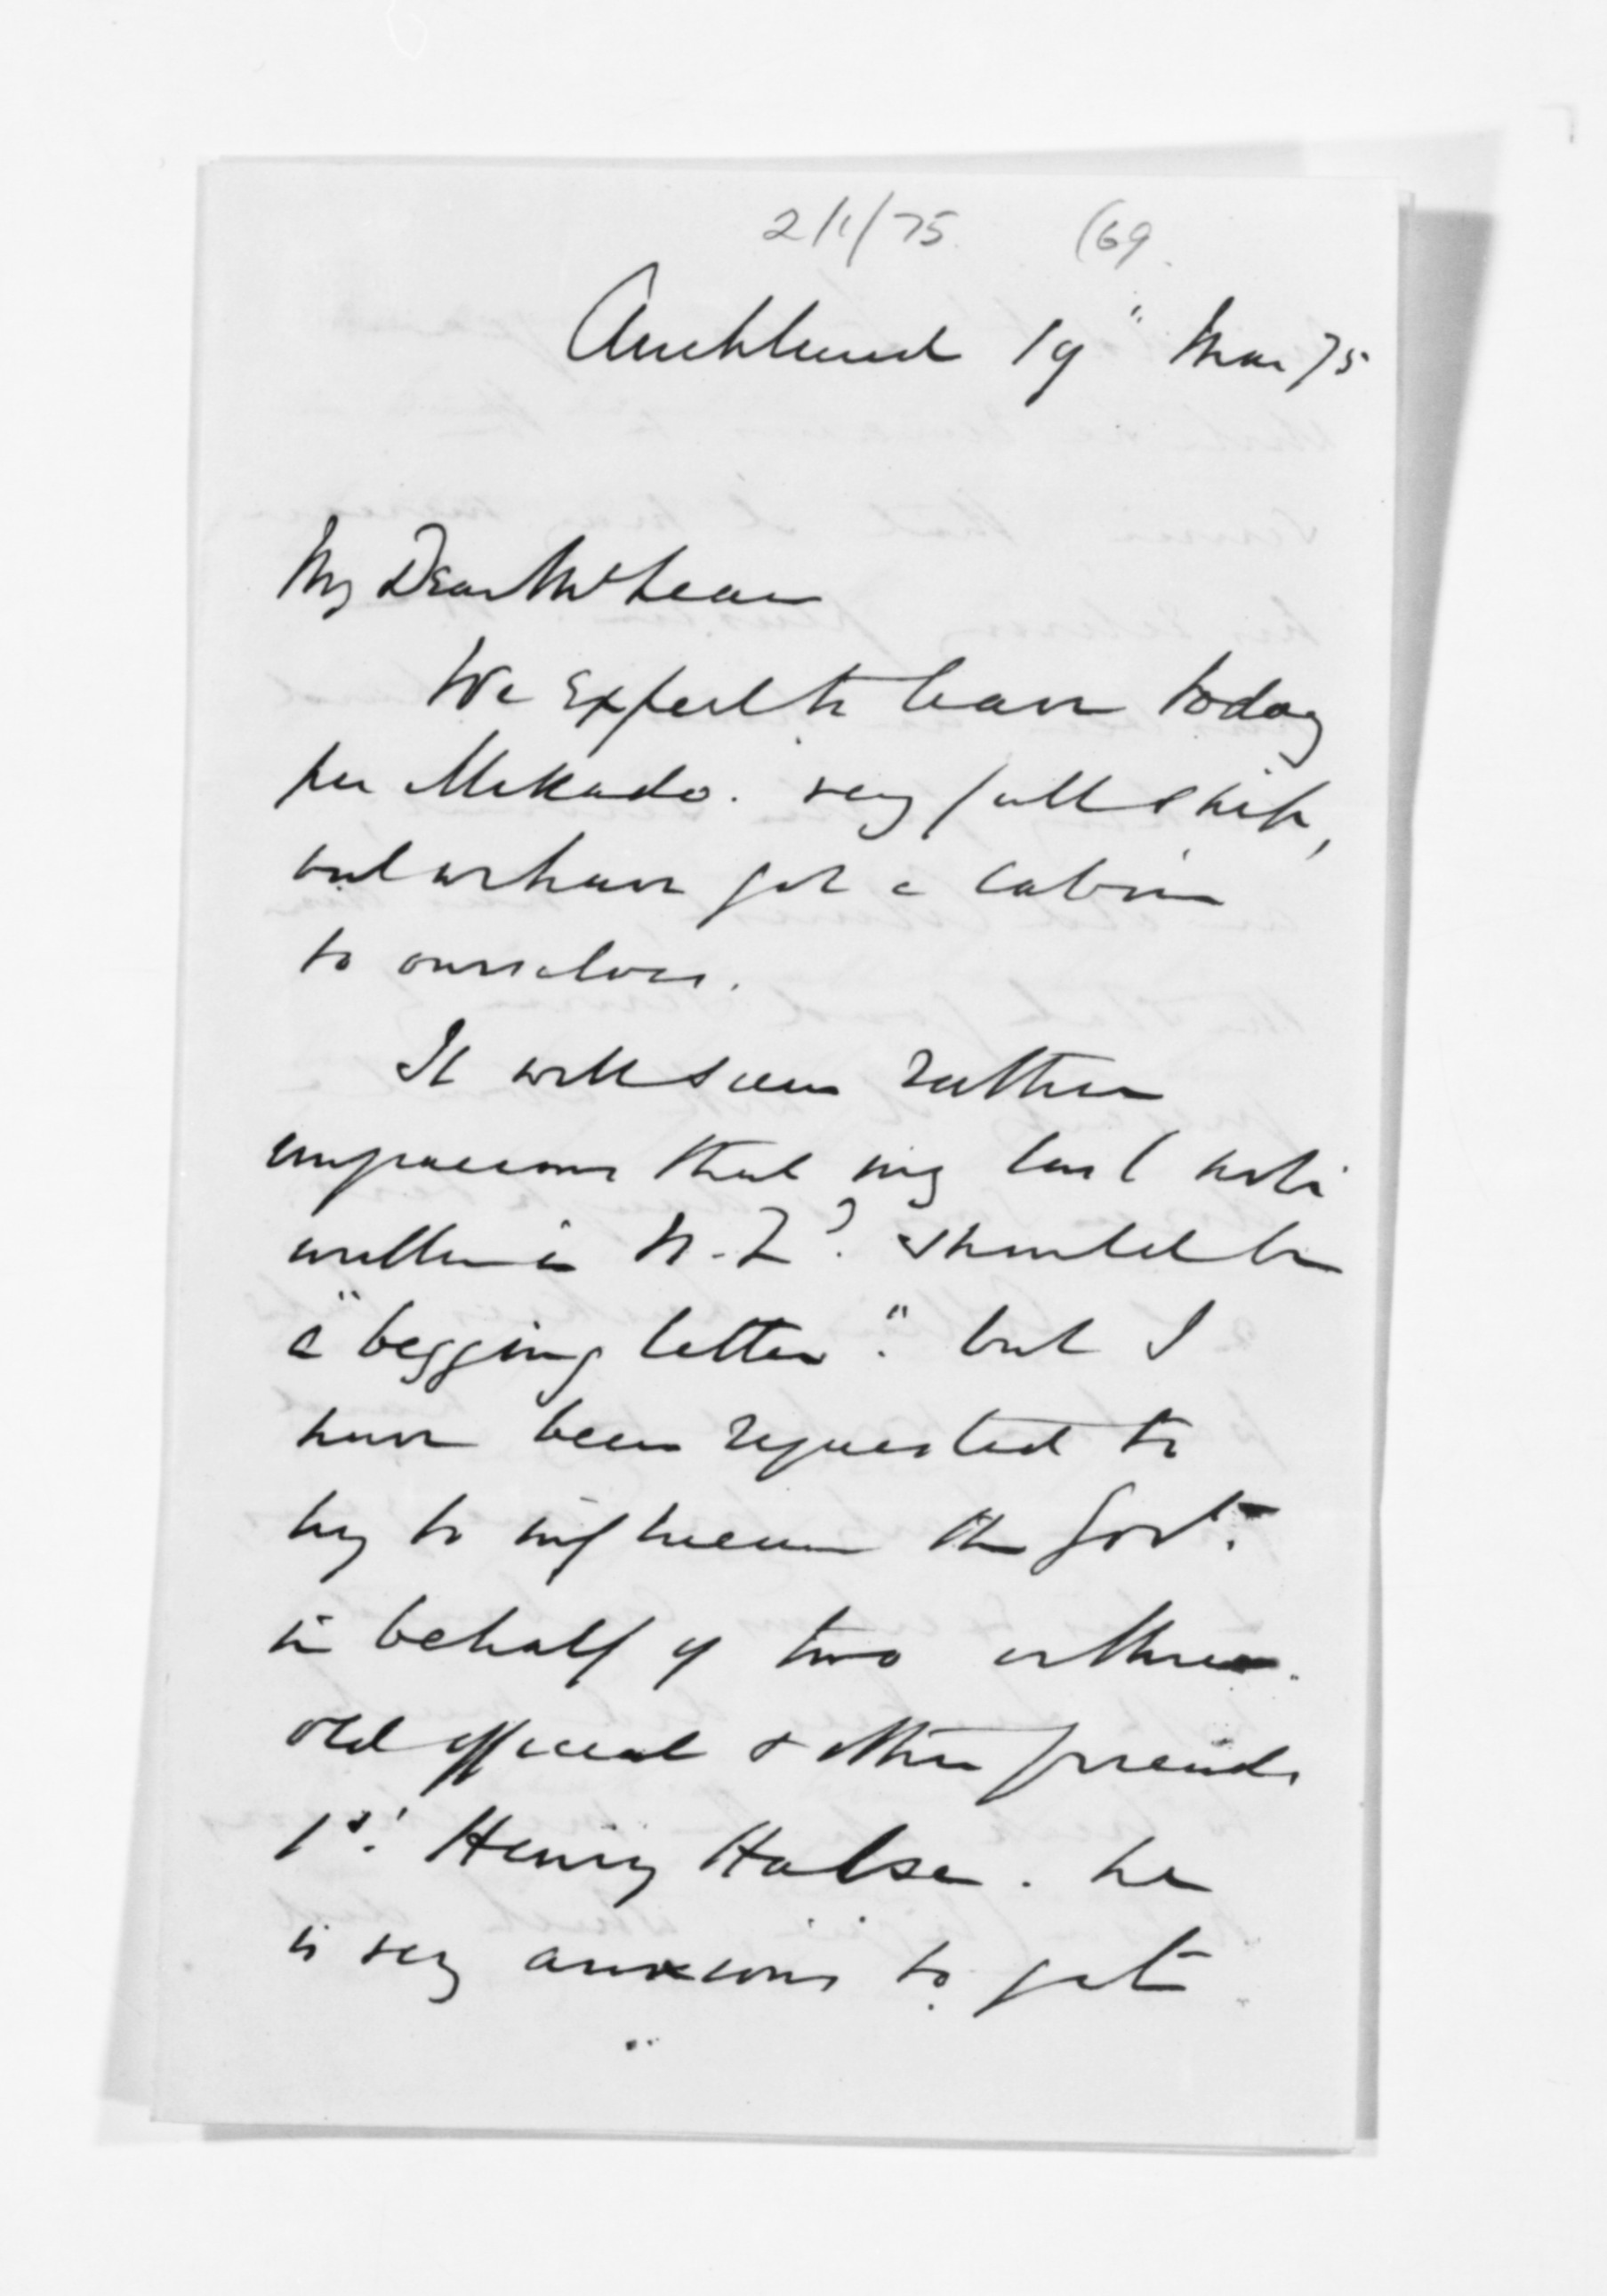 2/1/75. (69.
Auckland 19" Mar 75
My Dear McLean
We expect to leave today
per Mikado. very full ship,
but we have got a cabin
to ourselves.
It will seem rather
ungracious that my last note
written in N.Zd. should be
a "begging letter". but I
have been requested to
try to influence the Govt.
in behalf of two or three
old official & other friends
1st. Henry Halse. he
is very anxious to get